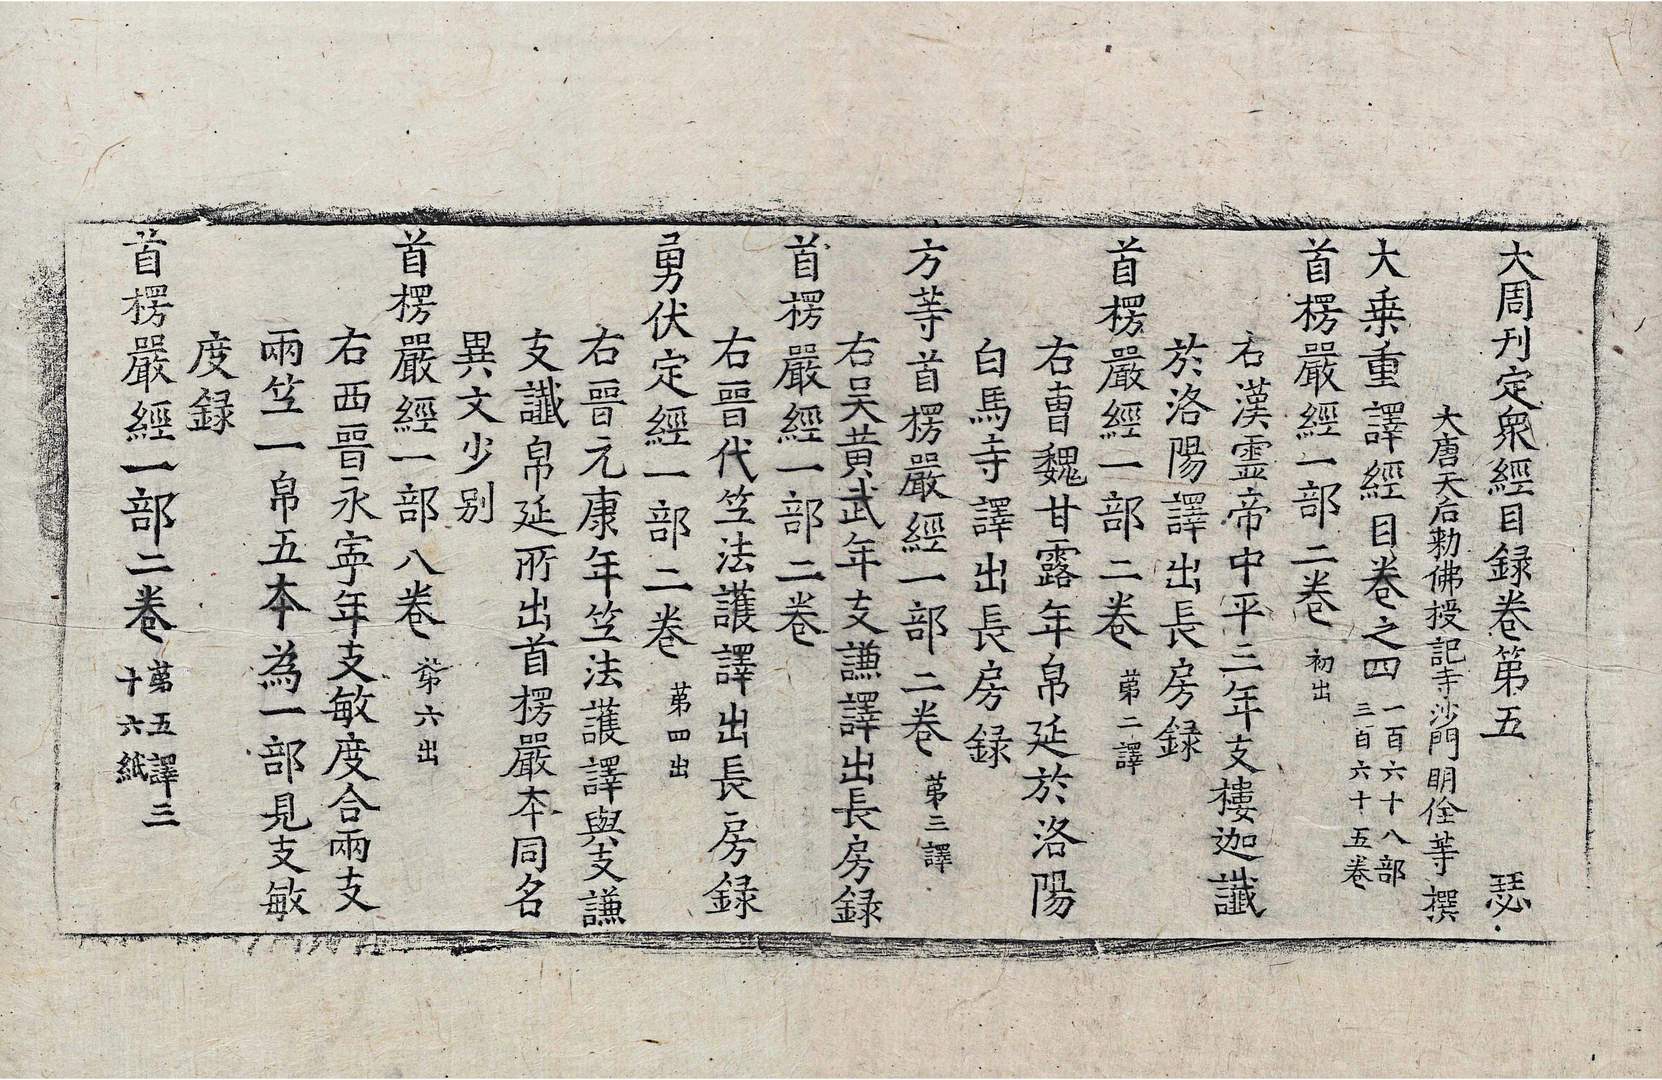 大周刊定衆經目録卷第五 瑟
大唐天后勅佛授記寺沙門明佺等撰
大乗重譯經目卷之四 一百六十八部 三百六十五卷
首楞嚴經一部二卷 初出
右漢靈帝中平三年支樓迦讖
於洛陽譯出長房録
首楞嚴經一部二卷 第二譯
右曹魏甘露年帛延於洛陽
白馬寺譯出長房録
方等首楞嚴經一部二卷 第三譯
右吴黄武年支謙譯出長房録
首楞嚴經一部二卷
右晉代竺法護譯出長房録
勇伏定經一部二卷 第四出
右晉元康年竺法護譯與支謙
支讖帛延所出首楞嚴本同名
異文少别
首楞嚴經一部八卷 第六出
右西晉永寧年支敏度合兩支
兩竺一帛五本為一部見支敏
度録
首楞嚴經一部二卷 第五譯三十六紙